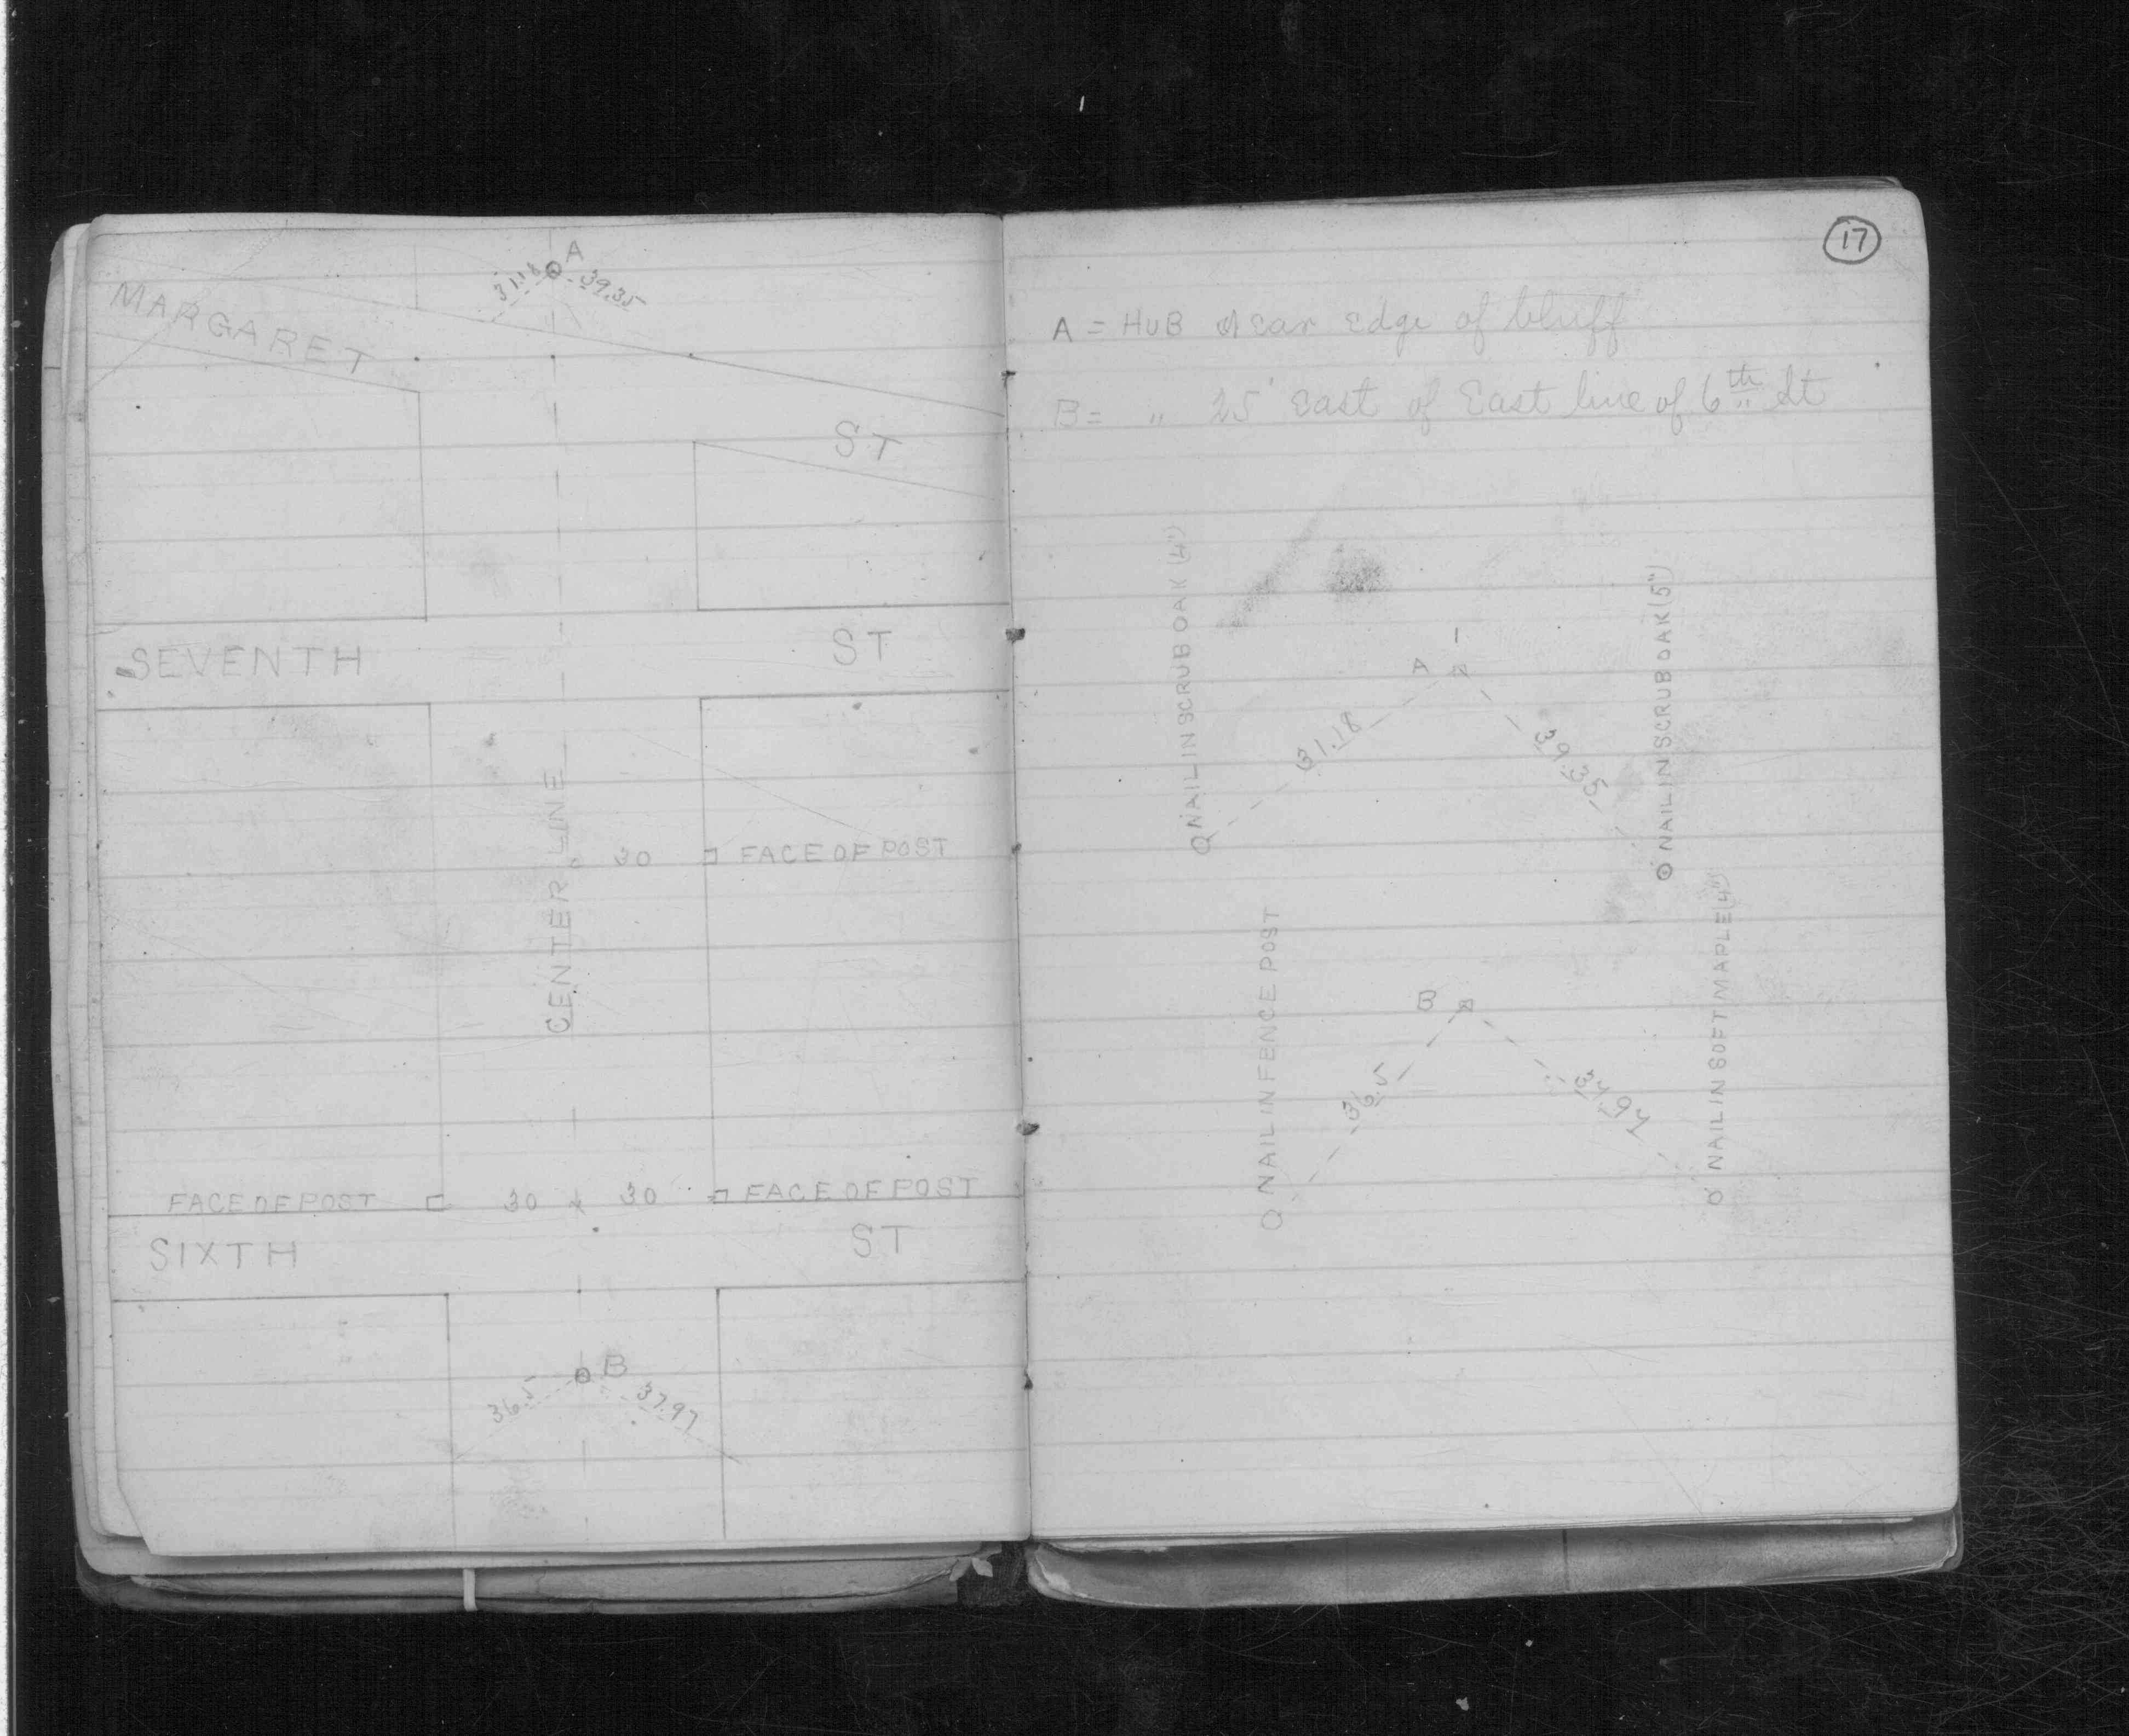 A
31.18 39.35
MARGARET
ST
SEVENTH ST
CENTER LINE
30 FACE OF POST
FACE OF POST 30 30 FACE OF POST
SIXTH ST
B
36.5 37.97
17
A = HUB near edge of bluff
B = " 25' East of East line of 6th St
NAIL IN SCRUB OAK (4")
NAIL IN SCRUB OAK (5")
A
31.18 39.35
NAIL IN FENCE POST
NAIL IN SOFT MAPLE (4")
B
36.5 37.97